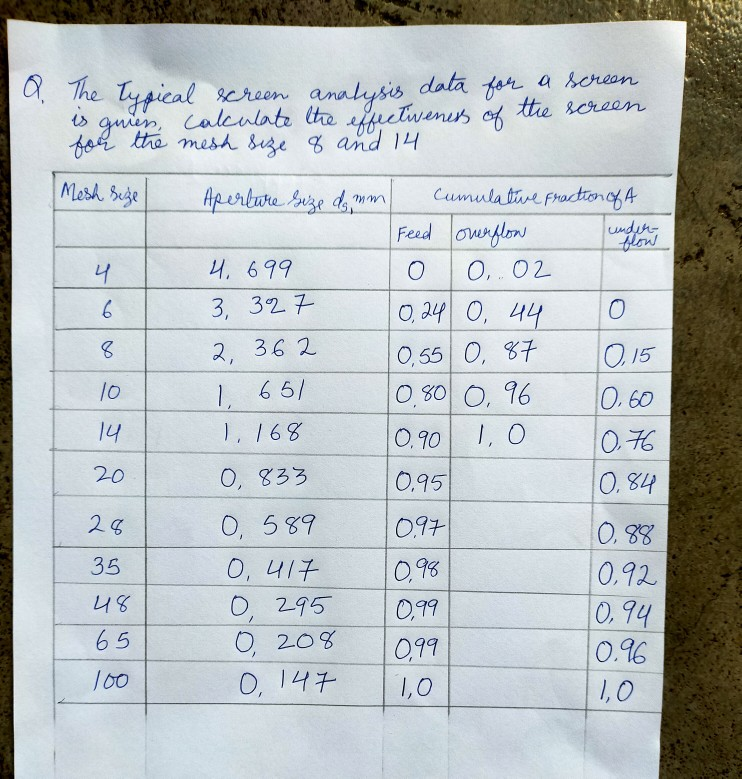 Q. The Typical screen analysis data for a screen
is given, calculate the effectiveness of the screen
for the mesh size 8 and 14
Mesh size Aperture size ds, mm Cumulative Fraction of A
Feed overflow under-flow
4 4.699 0 0..02
6 3,327 0,24 0,44 0
8 2,362 0,55 0,87 0,15
10 1,651 0,80 0,96 0.60
14 1.168 0.90 1,0 0,76
20 0,833 0,95 0.84
28 0,589 0,97 0,88
35 0,417 0,98 0,92
48 0,295 0,99 0,94
65 0,208 0,99 0.96
100 0,147 1,0 1,0